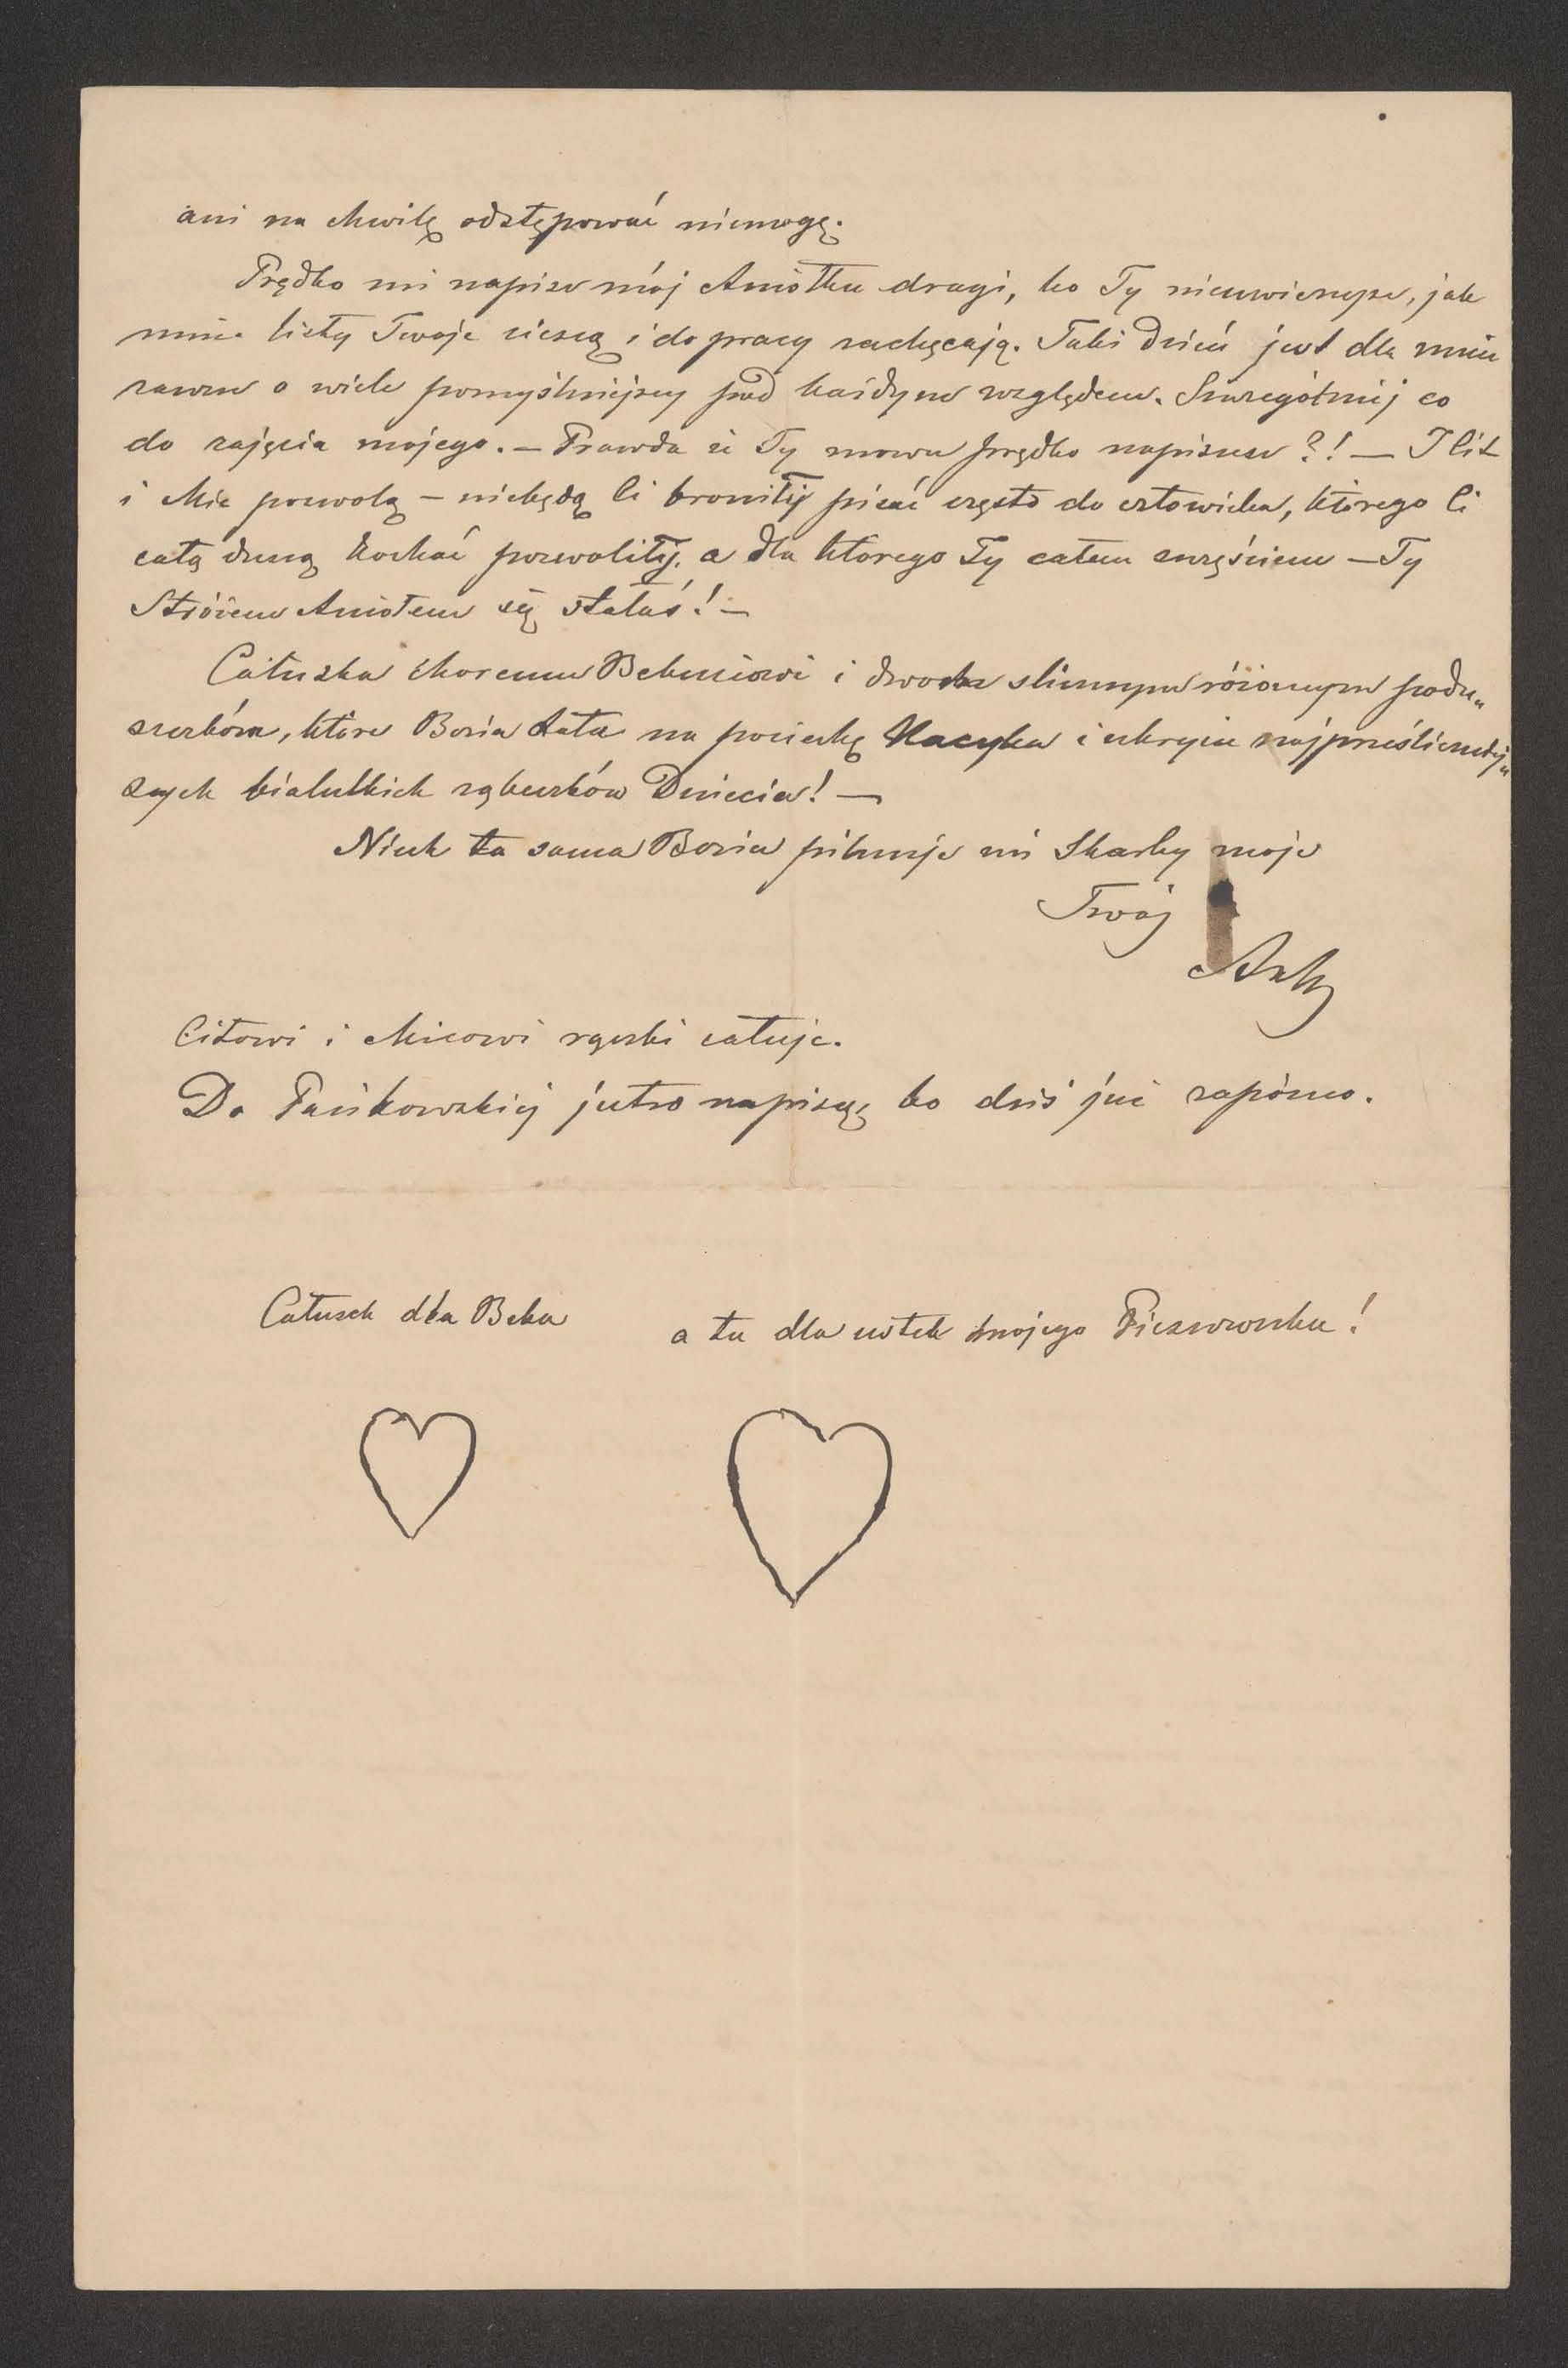 ani na chwilę odstępować niemogę.
Prędko mi napisz mój Aniołku drugi, bo Ty nieuwierzysz, jak
mnie listy Twoje cieszą i do pracy zachęcają. Taki dzień jest dla mnie
zawsze o wiele pomyślniejszy pod każdym względem. Szczególniej co
do zajęcia mojego. — Prawda że Ty znowu prędko napiszesz?! — I Cit
i Mic pozwolą — niebędą Ci broniły pisać często do człowieka, którego Ci
całą duszą kochać pozwoliły, a dla którego Ty całem szczęściem — Ty
Stróżem Aniołem się stałaś! —
Całuska choremu Bebusiowi i dwom ślicznym różowym podu„
szeczkom, które Bozia dała na pociechę Kacyka i ukrycie najprześliczniej„
szych bialutkich ząbeczków Dziecia! —
Niech ta sama Bozia pilnuje mi Skarby moje
Twój
Citowi i Micowi rączki całuję.
Do Pańkowskiej jutro napiszę, bo dziś już zapóźno.
Całusek dla Beba
a tu dla ustek mojego Pieszczoszka!